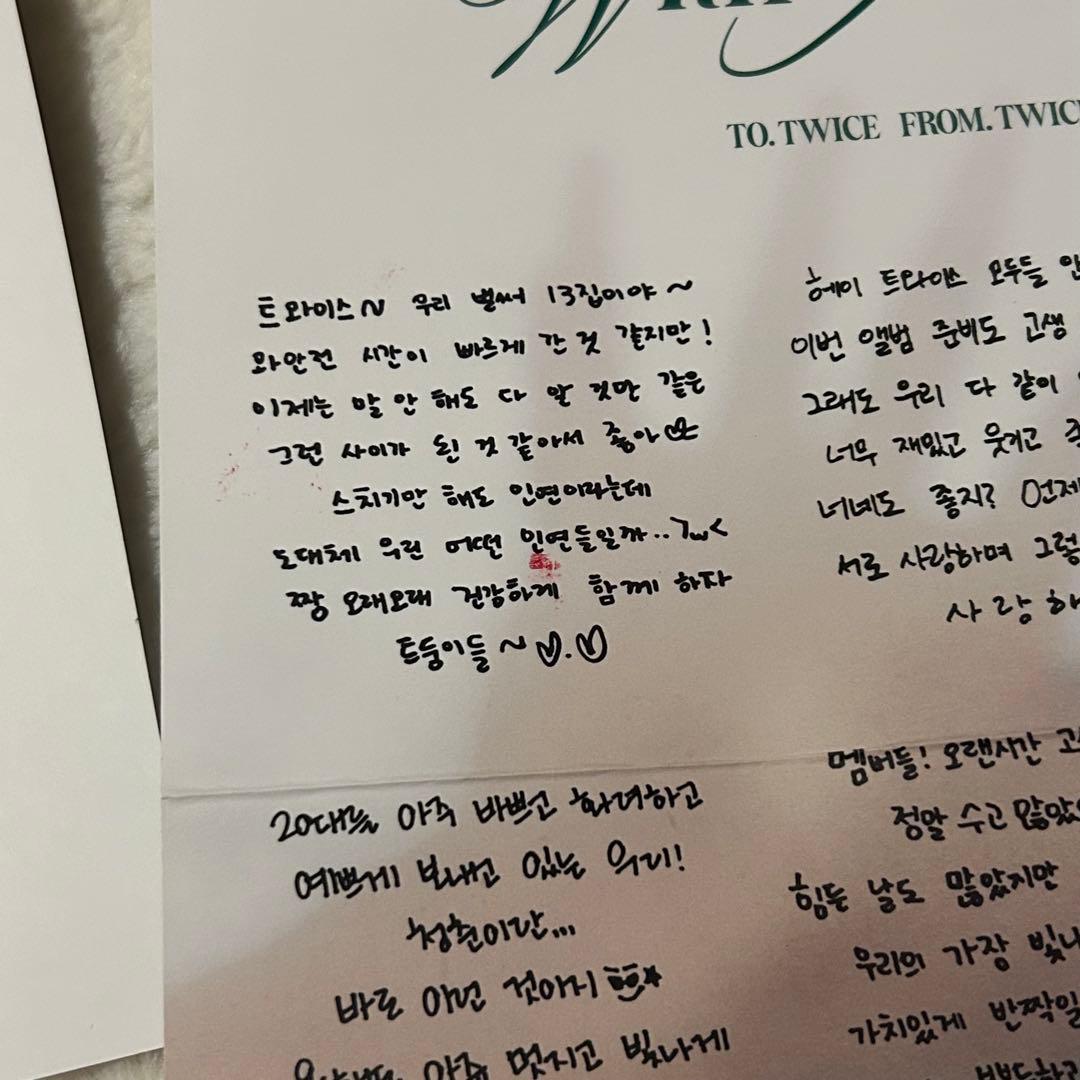 TO. TWICE FROM. TWIC
트와이스~ 우리 벌써 13집이야~
와안전 시간이 빠르게 간 것 같지만!
이제는 말 안 해도 다 알 것만 같은
그런 사이가 된 것 같아서 좋아
스치기만 해도 인연이라는데
도대체 우린 어떤 인연들일까..
짱 오래오래 건강하게 함께 하자
트둥이들~♡.♡
헤이 트와이스 모두들
이번 앨범 준비도 고생
그래도 우리 다 같이
너무 재밌고 웃기고
너네도 좋지? 언제
서로 사랑하며 그렇
사랑해
20대를 아주 바쁘고 화려하고
예쁘게 보내고 있는 우리!
청춘이란...
바로 이런 것이지
멋지고 빛나게
멤버들! 오랜시간
정말 수고 많았
힘든 날도 많았지만
우리의 가장 빛나
가치있게 반짝일